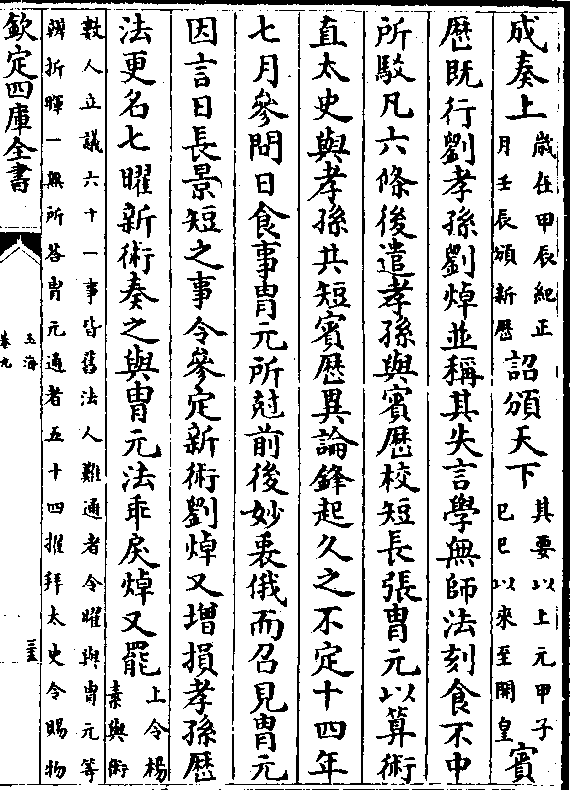 成奏上歲在甲辰紀正月壬辰頒新歷詔頒天下其要以上元甲子己巳以來至開皇賔
歷既行劉孝孫劉焯並稱其失言學無師法刻食不中
所駮凡六條後遣孝孫與賔歷校短長張胄元以算術
直太史與孝孫共短賔歷異論鋒起久之不定十四年
七月參問日食事胄元所尅前後妙衷俄而召見胄元
因言日長景短之事令參定新術劉焯又增損孝孫歷
法更名七曜新術奏之與胄元法乖戾焯又罷上令楊素與術
數人立議六十一事皆舊法人難通者令曜與胄元等
辨折暉一無所答胄元通者五十四擢拜太史令賜物
欽定四庫全書
玉海
卷九